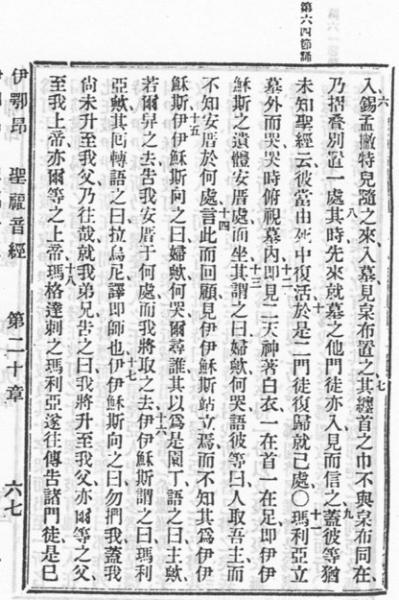 第六四節歸
六入錫孟憿特兒隨之來入墓見枲布置之七其纏首之巾不與枲布同在
乃摺疊別置一處八其時先來就墓之他門徒亦入見而信之九蓋彼等猶
未知聖經云彼當由死中復活十於是二門徒復歸就己處○十一瑪利亞立
墓外而哭哭時俯視墓內十二即見二天神著白衣一在首一在足即伊伊
穌斯之遺體安厝處而坐十三其謂之曰婦歟何哭語彼等曰人取吾主而
不知安厝於何處十四言此而回顧見伊伊穌斯站立焉而不知其為伊伊
穌斯十五伊伊穌斯向之曰婦歟何哭爾尋誰其以為是園丁語之曰主歟
若爾舁之去告我安厝于何處而我將取之去十六伊伊穌斯謂之曰瑪利
亞歟其回轉語之曰拉烏尼譯即師也十七伊伊穌斯向之曰勿捫我蓋我
尚未升至我父乃往哉就我弟兄告之曰我將升至我父亦爾等之父
至我上帝亦爾等之上帝十八瑪格達剌之瑪利亞遂往傳告諸門徒是已
伊鄂昂 聖福音經 第二十章 六七